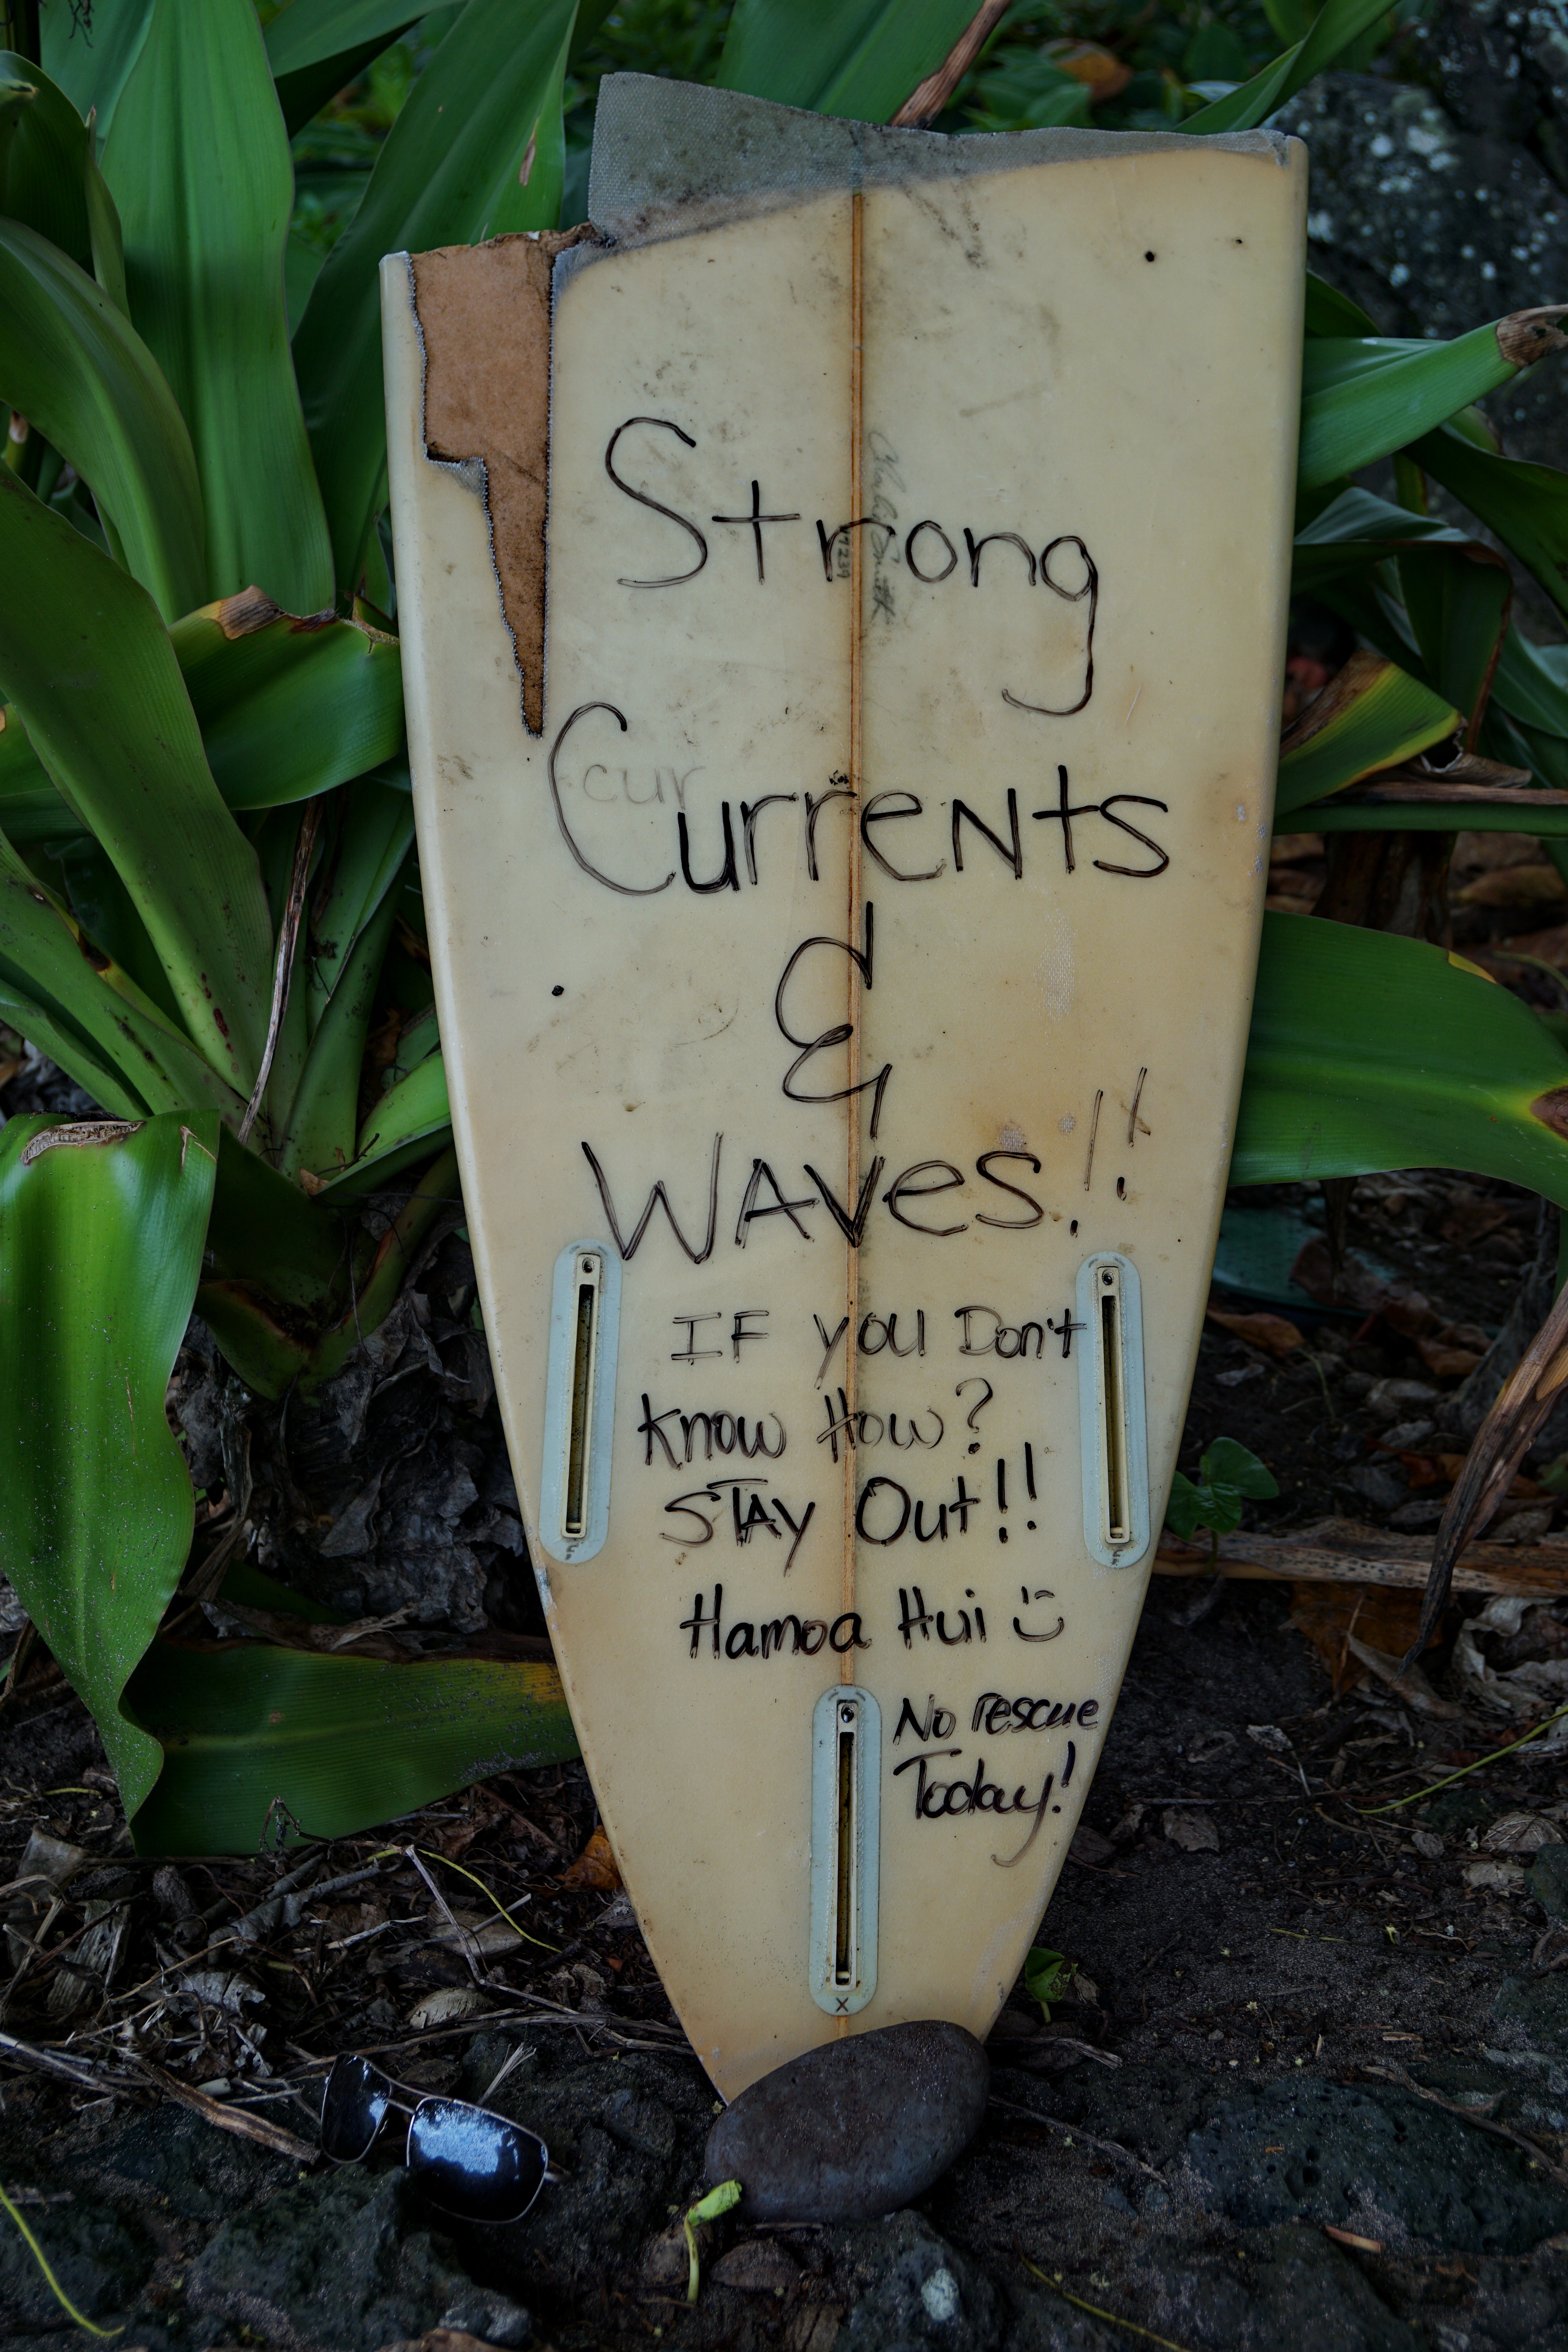 Strong
Currents
cur
&
WAVes!!
IF you Don't
know How?
STAy Out!!
Hamoa Hui
No rescue
Today!
X